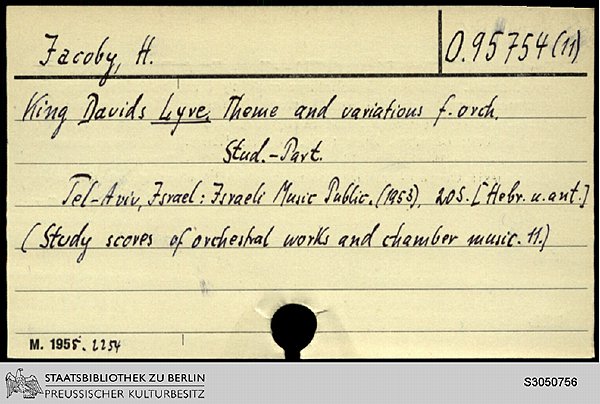 Jacoby, H.
O.95754(11)
King Davids Lyre. Theme and variations f. orch.
Stud.-Part.
Tel-Aviv, Israel: Israeli Music Public. (1953), 20 S. [Hebr. u. ant.]
(Study scores of orchestral works and chamber music. 11.)
M. 1955. 2254
STAATSBIBLIOTHEK ZU BERLIN
PREUSSISCHER KULTURBESITZ
S3050756